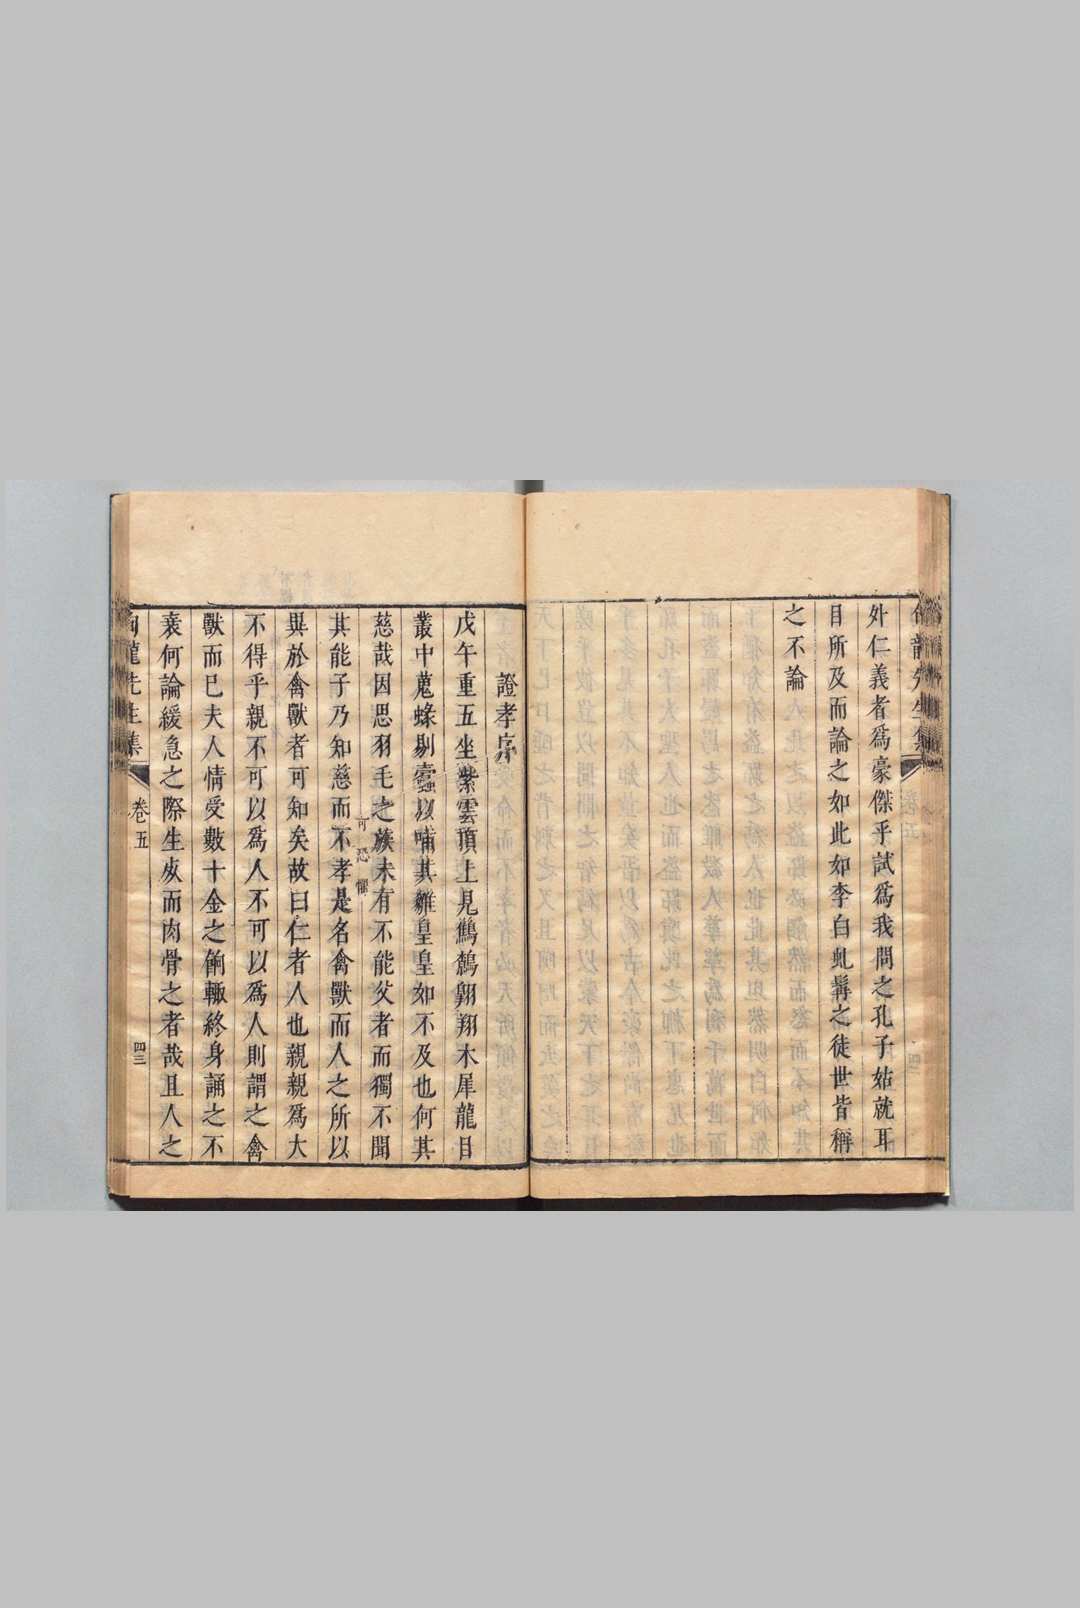 外仁義者爲豪傑乎試爲我問之孔子姑就耳
目所及而論之如此如李白虬髯之徒世皆稱
之不論
證孝序
戊午重五坐紫雲頂上見鷦鷯翱翔木犀龍目
叢中蒐蜂剔蠹以哺其雛皇皇如不及也何其
慈哉因思羽毛之族未有不能父者而獨不聞
可恐懼
其能子乃知慈而不孝是名禽獸而人之所以
異於禽獸者可知矣故曰仁者人也親親爲大
不得乎親不可以爲人不可以爲人則謂之禽
獸而已夫人情受數十金之餉輒終身誦之不
衰何論緩急之際生死而肉骨之者哉且人之
龍先生集
卷五
四三